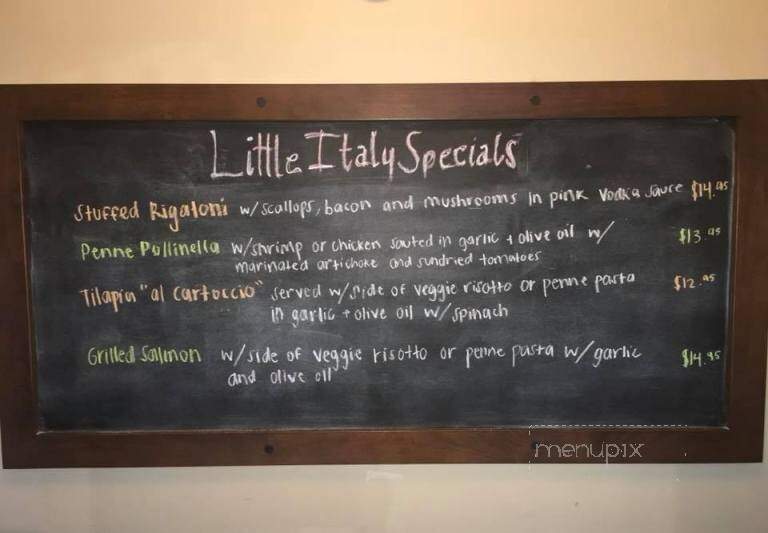 Little Italy Specials
Stuffed Rigatoni w/scallops, bacon and mushrooms in pink vodka sauce $14.95
Penne Pollinella w/shrimp or chicken sauted in garlic + olive oil w/ $13.95
marinated artichoke and sundried tomatoes
Tilapia "al cartoccio" served w/side of veggie risotto or penne pasta $12.95
in garlic + olive oil w/spinach
Grilled Salmon w/side of veggie risotto or penne pasta w/garlic $14.95
and olive oil
menupix